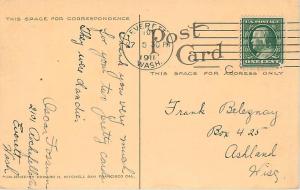 THIS SPACE FOR CORRESPONDENCE
EVERETT
5 30 PM
1911
WASH.
Post
Card
THIS SPACE FOR ADDRESS ONLY
U.S. POSTAGE
ONE CENT
Thank you very much
for your two pretty cards
They were dandies
Oscar
2101 Rockefeller
Everett
Wash.
Frank
Box 425
Ashland
Wis
PUBLISHED BY EDWARD H. MITCHELL SAN FRANCISCO CAL.